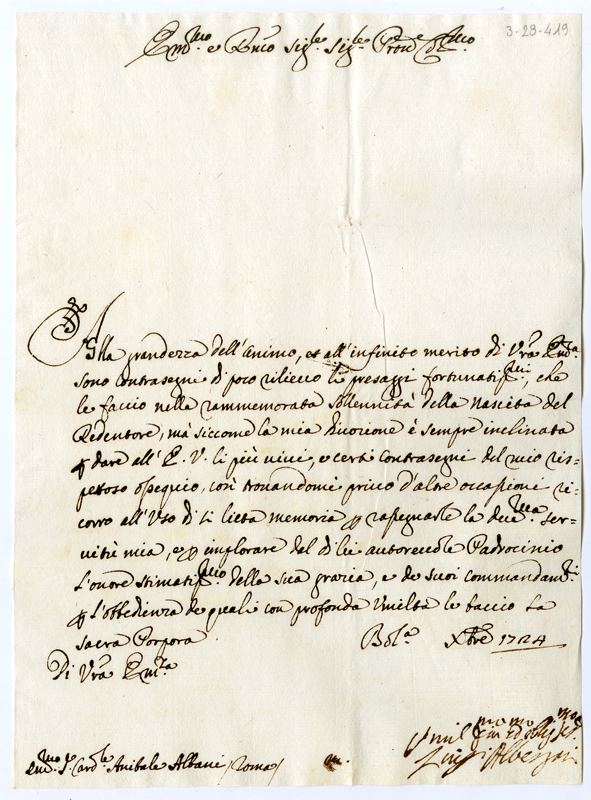 3-28-419
Em.mo e R.mo Sig.re Sig.re Pron.e Col.mo
Alla grandezza dell'animo, et all'infinito merito di V.ra Em.a
sono contrasegni di poco rilievo li presaggi fortunatiss.mi, che
le faccio nella rammemorata solennità della Nascita del
Redentore, mà siccome la mia divozione è sempre inclinata
p dare all'E. V. li più vivi, e certi contrasegni del mio ris-
pettoso ossequio, così trovandomi privo d'altre occasioni ri-
corro all'Uso di sì lieta memoria p rasegnarle la dev.ma ser-
vitù mia, e p implorare dal di lei autorevole Padrocinio
l'onore stimatiss.mo della sua grazia, e de suoi commandam.ti
p l'obbedienza de quali con profonda Umiltà le baccio La
Sacra Porpora. Bol.a X.bre 1724
Di V.ra Em.za
Umil.mo
Luigi
Em.mo S.r Card.le Anibale Albani /Roma/